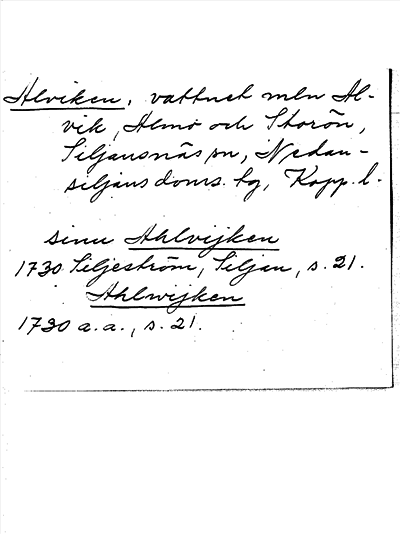 Alviken, vattnet mln Al-
vik, Almo och Storön,
Siljansnäs sn, Nedan-
siljans doms. tg, Kopp. l.
sinu Ahlvijken
1730 Siljeström, Siljan, s. 21.
Ahlwijken
1730 a. a., s. 21.